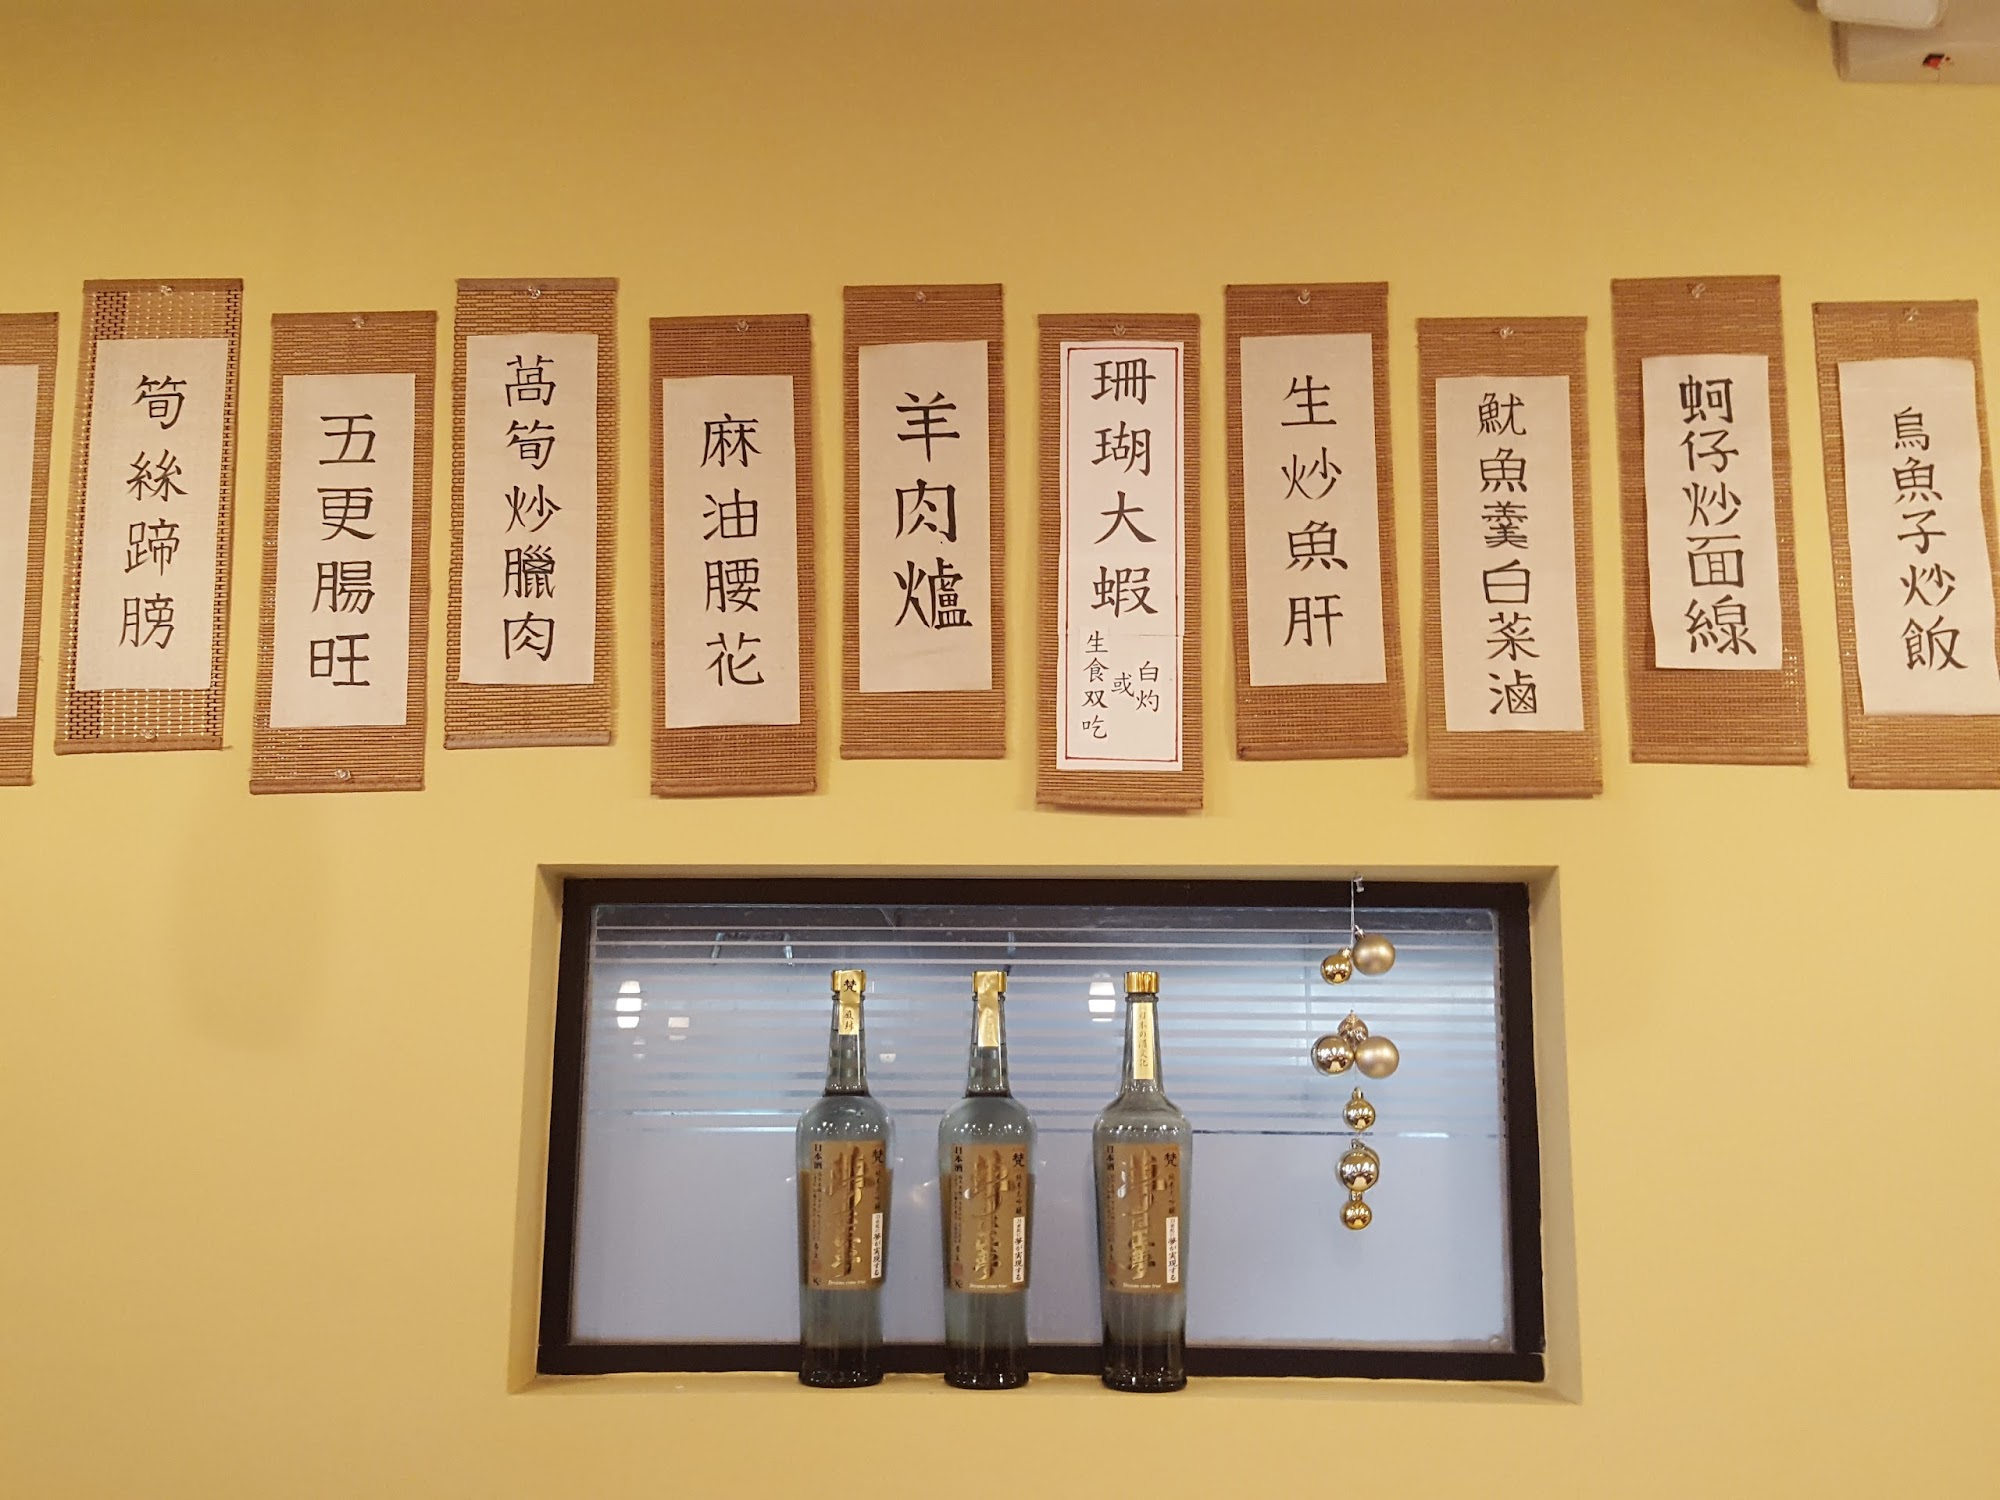 筍絲蹄膀
五更腸旺
萵筍炒臘肉
麻油腰花
羊肉爐
珊瑚大蝦
生食双吃
或
白灼
生炒魚肝
魷魚羹白菜滷
蚵仔炒面線
烏魚子炒飯
梵
日本の酒文化
日本酒
梵
夢は正夢
夢が実現する
Dreams come true
日本酒
梵
夢は正夢
夢が実現する
Dreams come true
日本酒
梵
夢は正夢
夢が実現する
Dreams come true